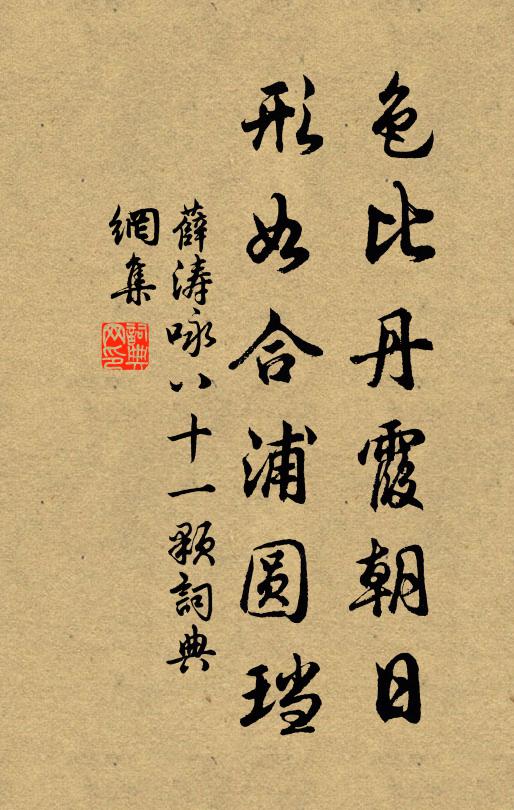 色比丹霞朝日
形如合浦圆珰
薛涛咏八十一颗詞典
網集
詞典网印